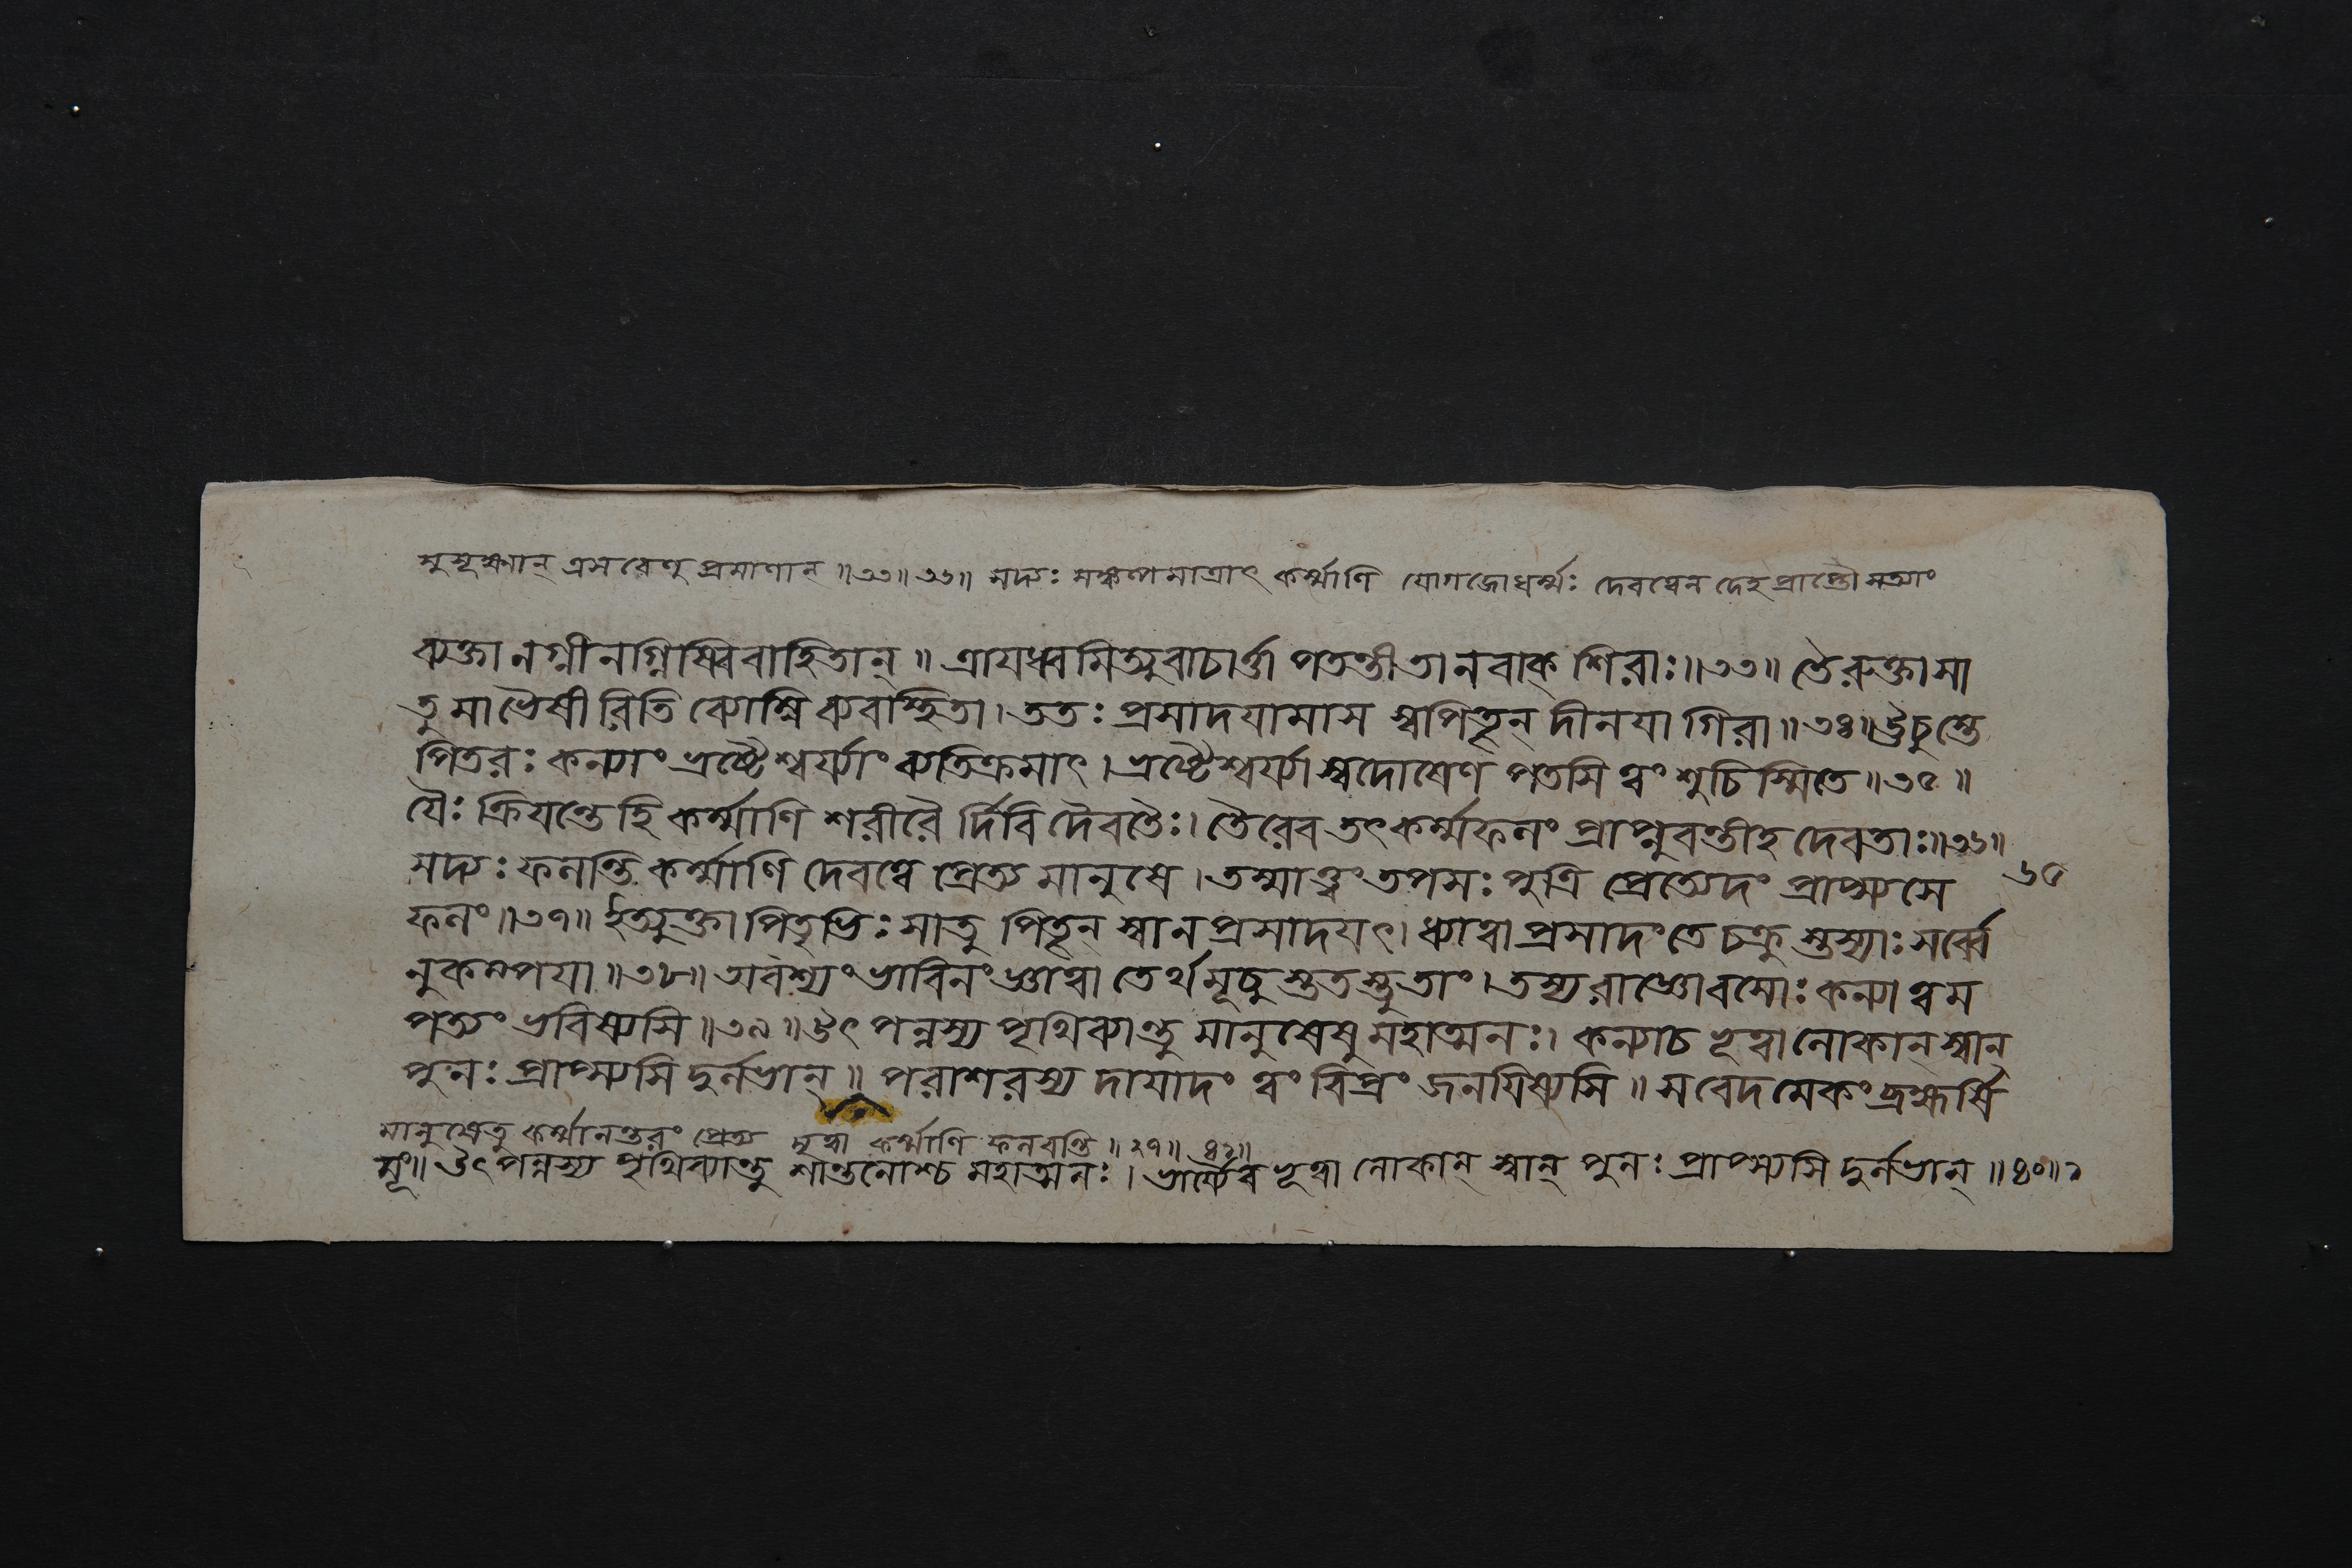 সুসূক্ষ্মান্ ত্রসরেণু প্রমাণান্ ॥৩৩॥ ৩৬॥ সদ্যঃ সঙ্কল্পমাত্রাৎ কর্ম্মাণি যোগজোধর্ম্মঃ দেবত্বেন দেহ প্রাপ্তৌ সত্যাং
ব্যক্তানগ্নীনগ্নিষ্বিবাহিতান্ ॥ ত্রাযধ্বমিত্যুবাচার্ত্তা পতন্তীতানবাক্ শিরাঃ॥৩৩॥ তৈরুক্তাসা
তু মাভৈষীরিতি ব্যোম্নি ব্যবস্থিতা। ততঃ প্রসাদযামাস স্বপিতৄন্ দীনযা গিরা॥৩৪॥ ঊচুস্তে
পিতরঃ কন্যাং ভ্রষ্টৈশ্বর্য্যাং ব্যতিক্রমাৎ। ভ্রষ্টৈশ্বর্য্যা স্বদোষেণ পতসি ত্বং শুচিস্মিতে॥৩৫॥
যৈঃ ক্রিযন্তেহি কর্ম্মাণি শরীরৈর্দিবি দৈবতৈঃ। তৈরেব তৎকর্ম্মফলং প্রাপ্নুবন্তীহ দেবতাঃ॥৩৬॥
সদ্যঃ ফলন্তি কর্ম্মাণি দেবত্বে প্রেত্য মানুষে। তস্মাত্ত্বং তপসঃ পুত্রি প্রেত্যেদং প্রাপ্স্যসে
৬৫
ফলং॥৩৭॥ ইত্যুক্তা পিতৃভিঃ সাতু পিতৄন্ স্বান প্রসাদযৎ। ধ্যাত্বা প্রসাদং তে চক্রু স্তস্যাঃ সর্ব্বে
নুকম্পযা॥৩৮॥ অবশ্যং ভাবিনং জ্ঞাত্বা তের্থমূচুস্ততস্তুতাং। তস্য রাজ্ঞোবসোঃ কন্যা ত্বম
পত্যং ভবিষ্যসি॥৩৯॥ উৎপন্নস্য পৃথিব্যান্তু মানুষেষু মহাত্মনঃ। কন্যাচ ভূত্বা লোকান্ স্বান্
পুনঃ প্রাপ্স্যসি দুর্লভান্॥ পরাশরস্য দাযাদং ত্বং বিপ্রং জনযিষ্যসি॥ সবেদমেকং ব্রহ্মর্ষি
মানুষেতু কর্ম্মানন্তরং প্রেত্য মৃত্বা কর্ম্মাণি ফলবন্তি॥৩৭॥ ৪২॥
মূং॥ উৎপন্নস্য পৃথিব্যান্তু শান্তনোশ্চ মহাত্মনঃ। ভার্য্যৈব ভূত্বা লোকান্ স্বান্ পুনঃ প্রাপ্স্যসি দুর্লভান্॥৪০॥২